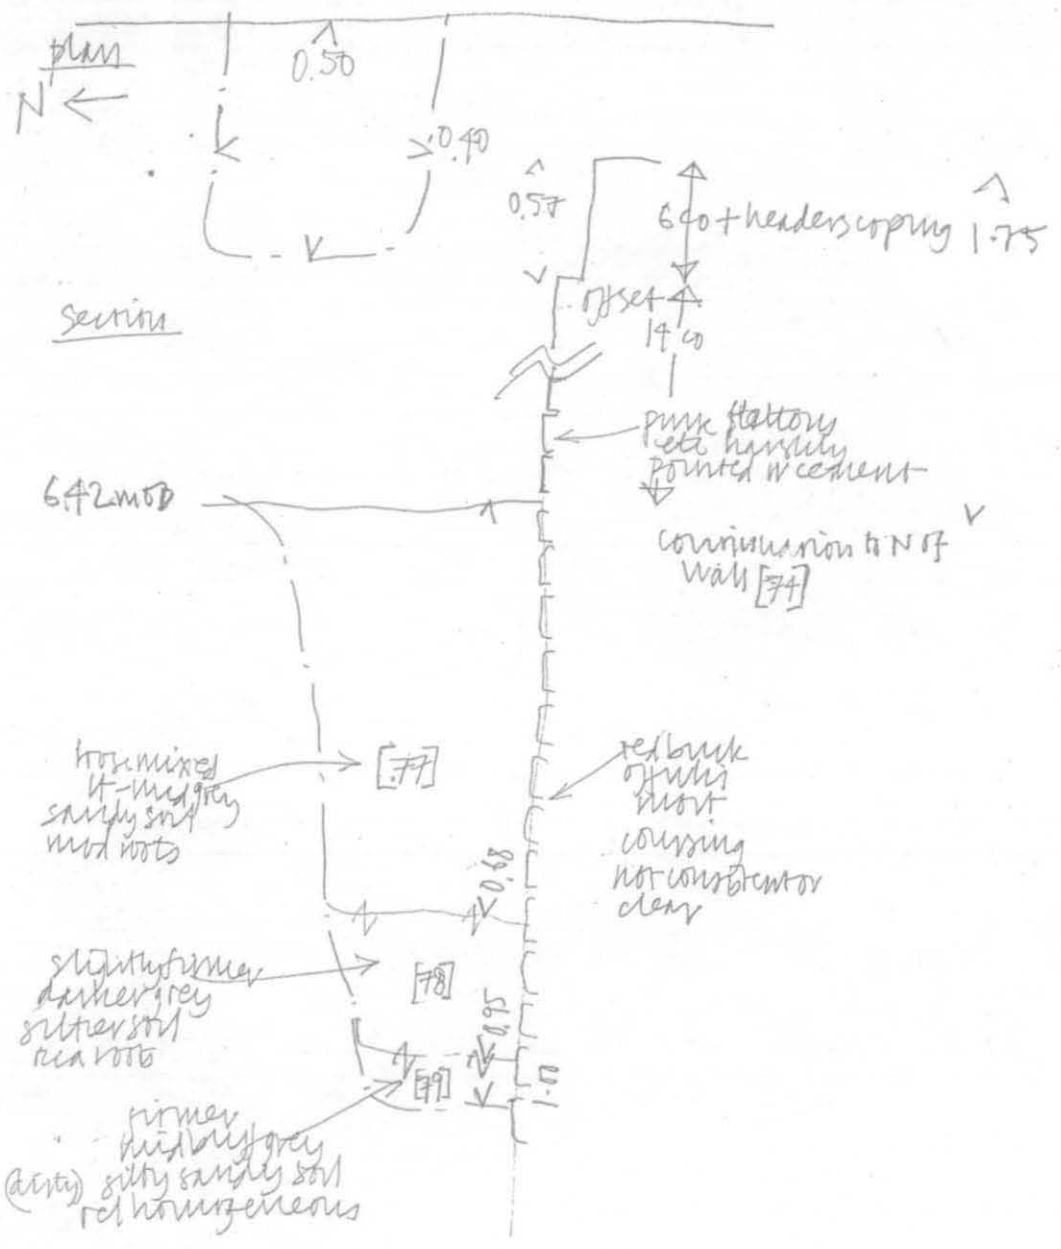 plan
0.50
N
0.40
0.57
6 co + headers coping 1.75
offset
14 co
Section
pink
etc harshly
pointed w cement
6.42 mOD
continuation to N of
Wall [74]
loose mixed
lt-mid grey
sandy soil
mod roots
[77]
red brick
most
coursing
not consistent or
clear
0.68
slightly firmer
darker grey
siltier soil
roots
[78]
0.95
[79]
1.00
firmer
mid buff grey
(dirty) silty sandy soil
rel homogeneous